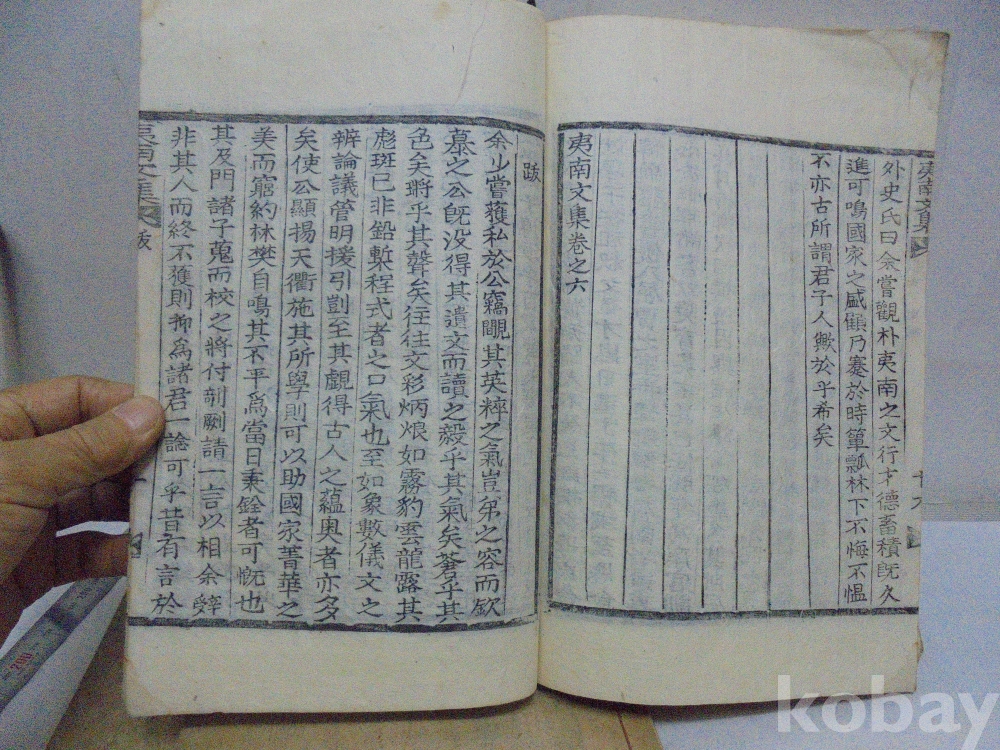 外史氏曰余嘗觀朴夷南之文行才德畜積旣久
進可鳴國家之盛顧乃蹇於時簞瓢林下不悔不慍
不亦古所謂君子人歟於乎希矣
夷南文集卷之六
跋
余少嘗獲私於公竊覸其英粹之氣豈弟之容而欽
慕之公旣没得其遺文而讀之毅乎其氣矣蒼乎其
色矣鏘乎其聲矣往往文彩炳烺如霧豹雲龍露其
彪斑已非鉛槧程式者之口氣也至如象數儀文之
辨論議管明援引剴至其覰得古人之蘊奧者亦多
矣使公顯揚天衢施其所學則可以助國家菁華之
美而窮約林樊自鳴其不平爲當日秉銓者可慨也
其及門諸子蒐而校之將付剞劂請一言以相余辭
非其人而終不獲則抑爲諸君一諗可乎昔有言於
夷南文集
跋
夷南文集
十九
200
kobay